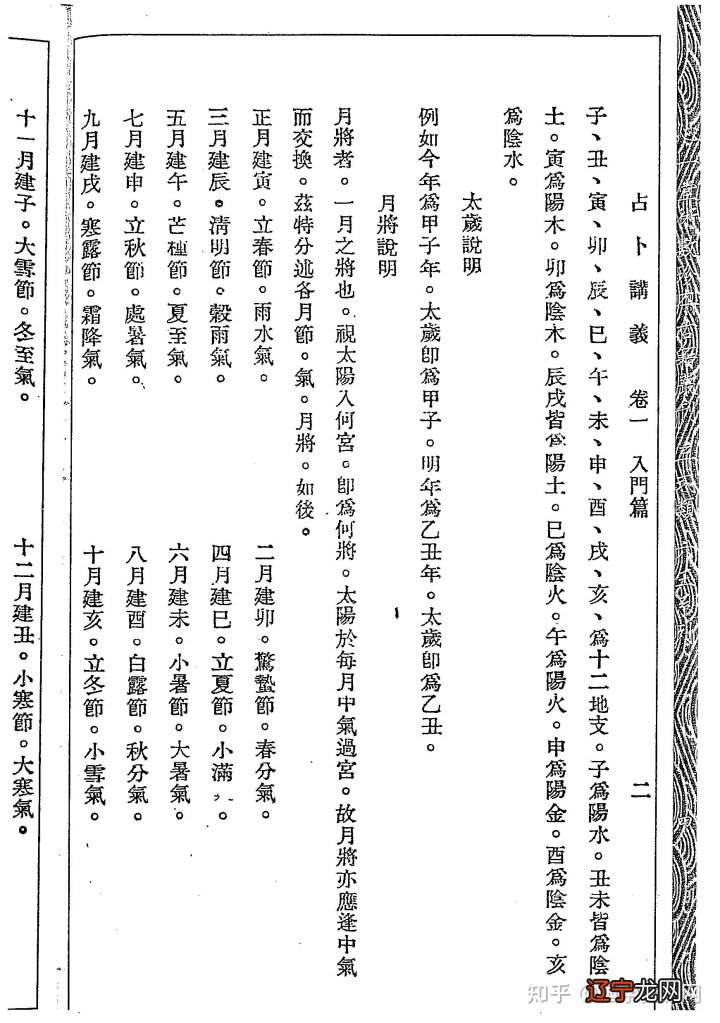 占卜講義　卷一　入門篇　二
子、丑、寅、卯、辰、巳、午、未、申、酉、戌、亥、爲十二地支。子爲陽水。丑未皆爲陰
土。寅爲陽木。卯爲陰木。辰戌皆爲陽土。巳爲陰火。午爲陽火。申爲陽金。酉爲陰金。亥
爲陰水。
太歲說明
例如今年爲甲子年。太歲卽爲甲子。明年爲乙丑年。太歲卽爲乙丑。
月將說明
月將者。一月之將也。視太陽入何宮。卽爲何將。太陽於每月中氣過宮。故月將亦應逢中氣
而交換。茲特分述各月節。氣。月將。如後。
正月建寅。立春節。雨水氣。　二月建卯。驚蟄節。春分氣。
三月建辰。清明節。穀雨氣。　四月建巳。立夏節。小滿。
五月建午。芒種節。夏至氣。　六月建未。小暑節。大暑氣。
七月建申。立秋節。處暑氣。　八月建酉。白露節。秋分氣。
九月建戌。寒露節。霜降氣。　十月建亥。立冬節。小雪氣。
十一月建子。大雪節。冬至氣。　十二月建丑。小寒節。大寒氣。
知乎
辽宁龙网